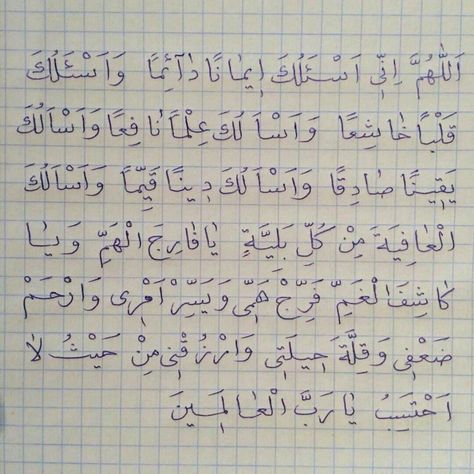 اَللّٰهُمَّ اِنِّي اَسْئَلُكَ اِيمٰانًا دٰآئِمًا وَاَسْئَلُكَ
قَلْبًا خٰاشِعًا وَاَسْاَلُكَ عِلْمًا نٰافِعًا وَاَسْاَلُكَ
يَقِينًا صٰادِقًا وَاَسْاَلُكَ دِينًا قَيِّمًا وَاَسْاَلُكَ
الْعٰافِيَةَ مِنْ كُلِّ بَلِيَّةٍ يٰا فٰارِجَ الْهَمِّ وَيٰا
كٰاشِفَ الْغَمِّ فَرِّجْ هَمِّى وَيَسِّرْ اَمْرِى وَارْحَمْ
ضَعْفِى وَقِلَّةَ حِيلَتِى وَارْزُقْنِى مِنْ حَيْثُ لٰا
اَحْتَسِبُ يٰا رَبَّ الْعٰالَمِينَ